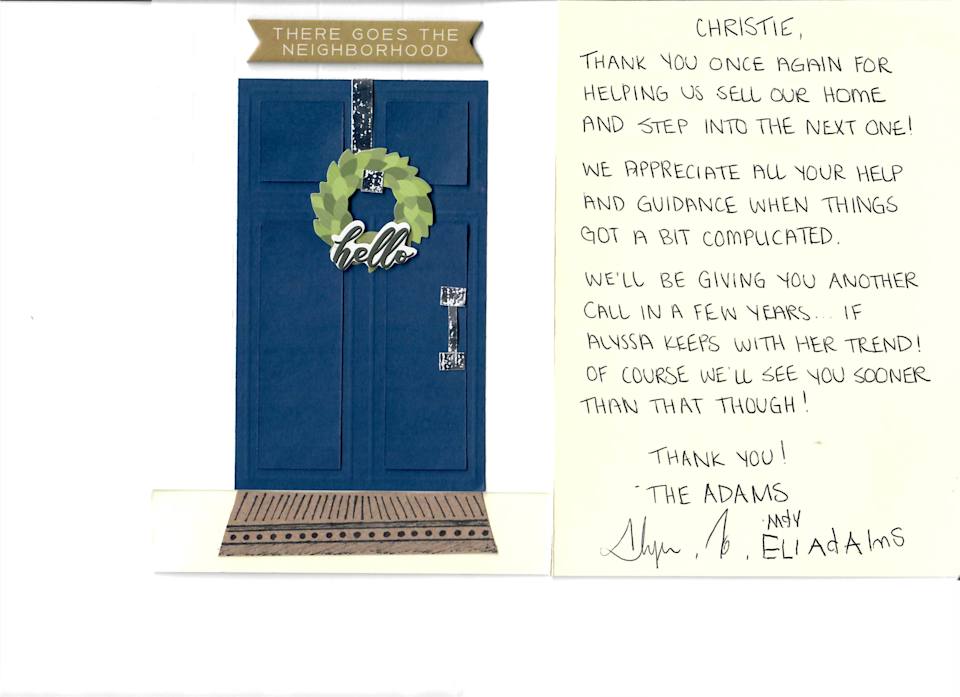 THERE GOES THE
NEIGHBORHOOD
hello
CHRISTIE,
THANK YOU ONCE AGAIN FOR
HELPING US SELL OUR HOME
AND STEP INTO THE NEXT ONE!
WE APPRECIATE ALL YOUR HELP
AND GUIDANCE WHEN THINGS
GOT A BIT COMPLICATED.
WE'LL BE GIVING YOU ANOTHER
CALL IN A FEW YEARS... IF
ALYSSA KEEPS WITH HER TREND!
OF COURSE WE'LL SEE YOU SOONER
THAN THAT THOUGH!
THANK YOU!
THE ADAMS
ELI AdAms